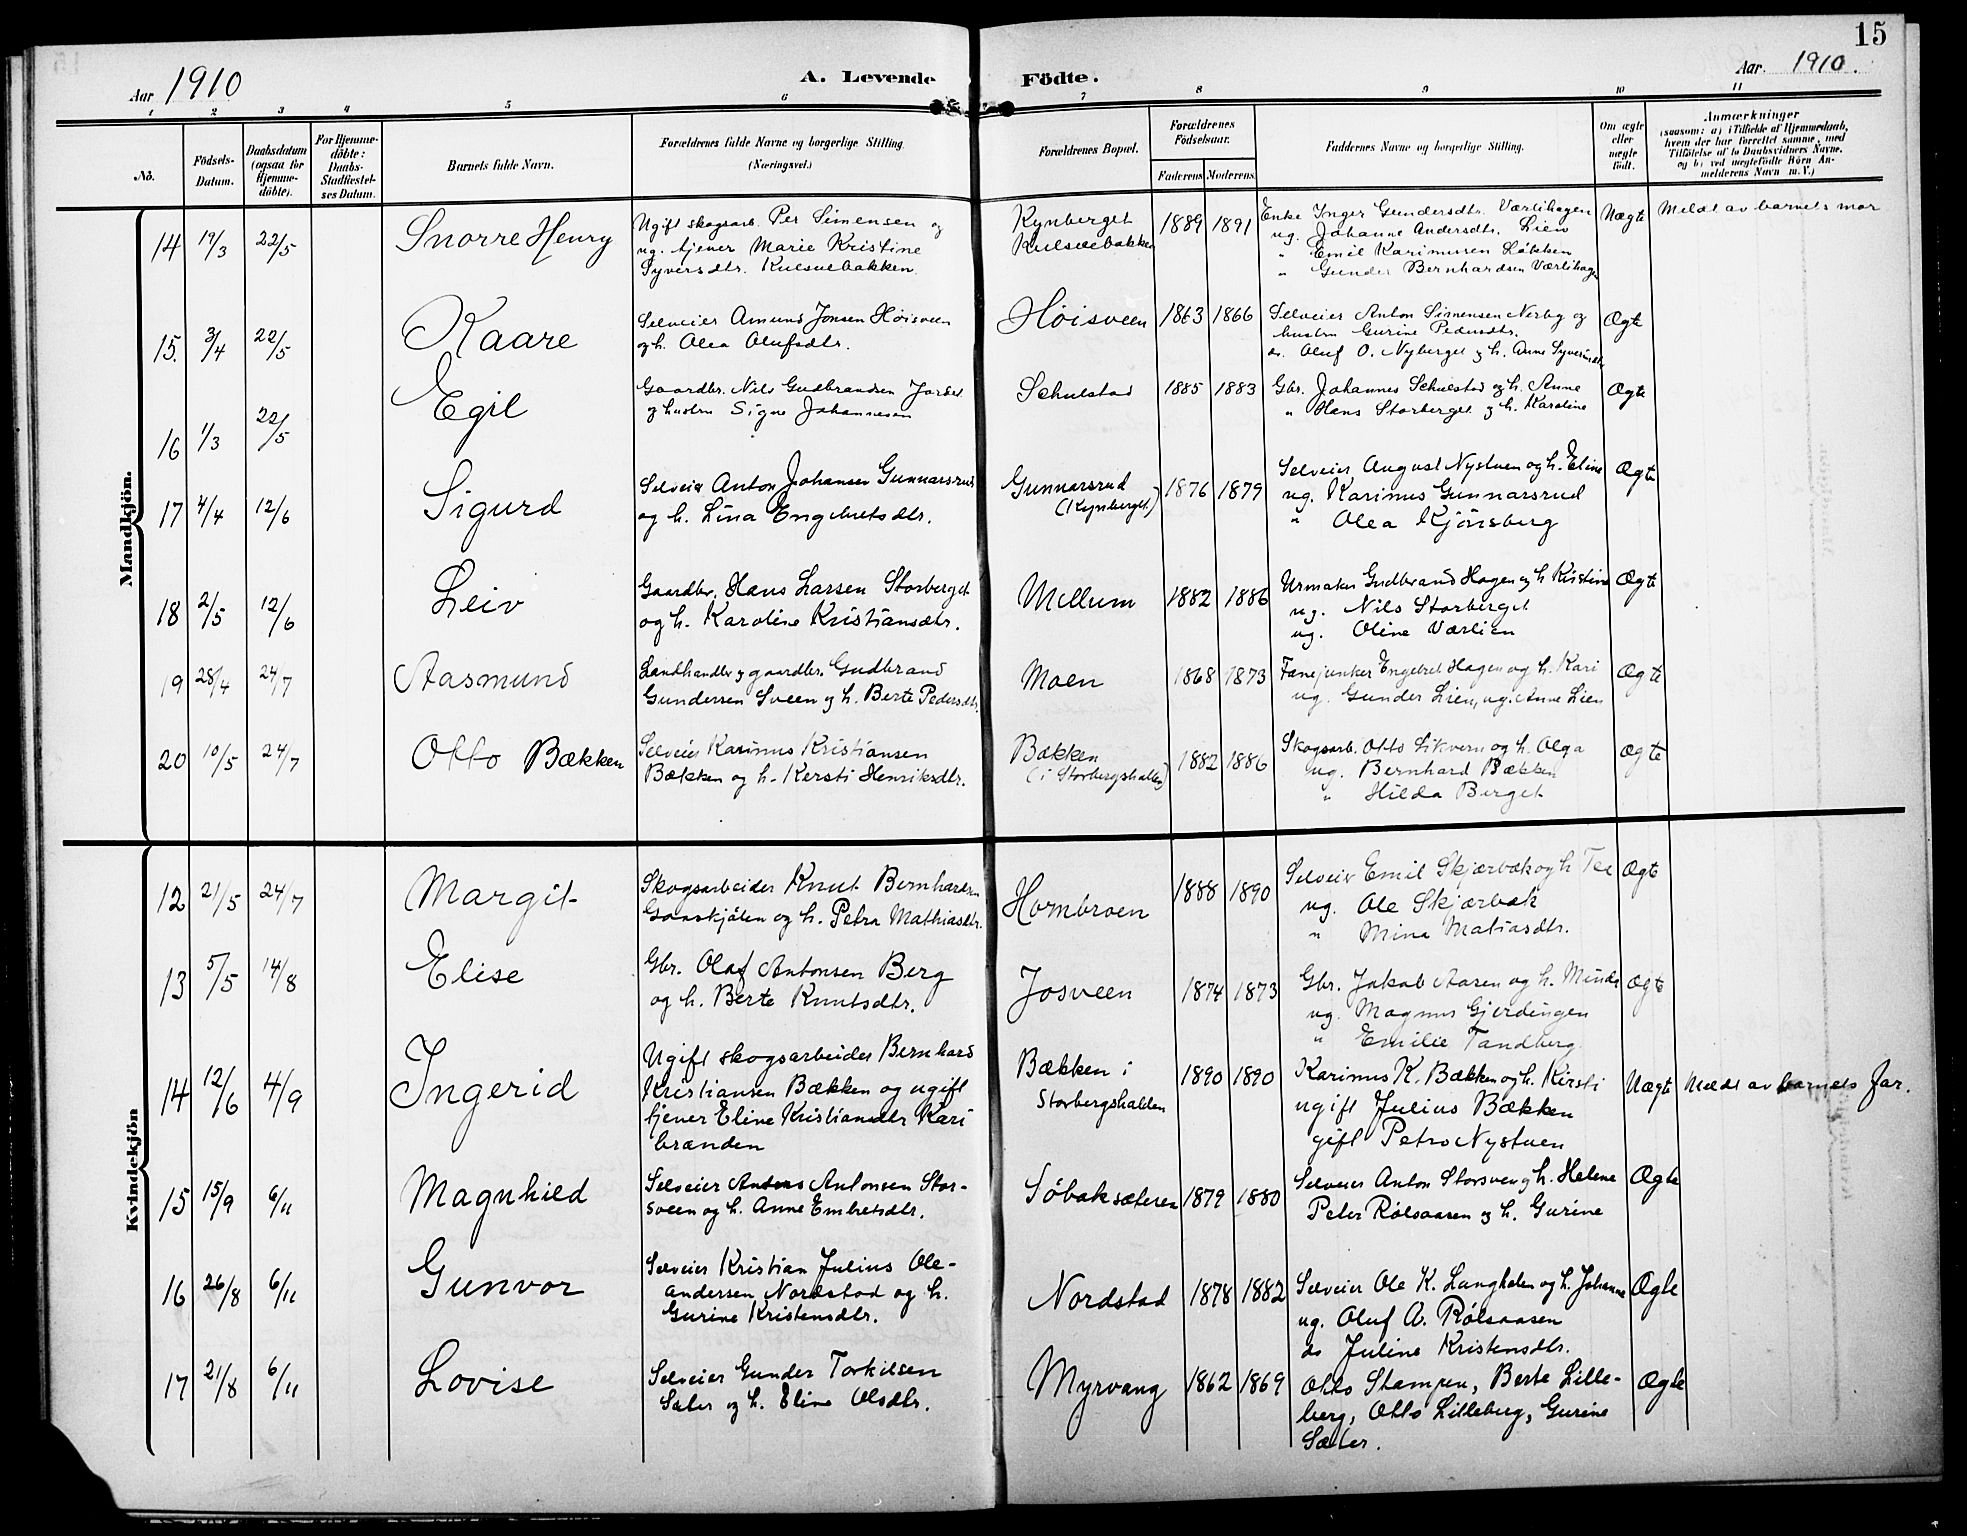 15
Aar 1910
A. Levende Födte.
Aar. 1910.
1 2 3 4 5 6 7 8 9 10 11
No.
Födsels-Datum.
Daabsdatum (ogsaa for Hjemmedöbte).
For Hjemmedöbte: Daabs-Stadfæstelses Datum.
Barnets fulde Navn.
Forældrenes fulde Navne og borgerlige Stilling. (Næringsvei.)
Forældrenes Bopæl.
Forældrenes Födselsaar.
Faderens Moderens
Faddernes Navne og borgerlige Stilling.
Om ægte eller uægte födt.
Anmærkninger
(saasom: a) i Tilfælde af Hjemmedaab, hvem der har forrettet samme, med Tilföielse af to Daabsvidners Navne, og b) ved uægtefödte Börn Anmelderens Navn m. V.)
Mandkjön.
14 19/3 22/5 Snorre Henry
Ugift skogsarb. Per Simensen og
ug. tjener Marie Kristine
Syversdtr. Kulsvebakken.
Kynberget
Kulsvebakken
1889 1891
Enke Inger Gundersdtr. Værlihagen
ug. Johanne Andersdtr. Lien
" Emil Karimusen Løkken
" Gunder Bernhardsen Værlihagen
Uægte
Meldt av barnets mor
15. 3/4 22/5 Kaare
Selveier Amund Jonsen Høisveen
og h. Olea Olufsdtr.
Høisveen
1863 1866
Selveier Anton Simensen Nerby og
hustru Gurine Pedersdtr.
do. Oluf O. Nyberget og h. Anne Syversdtr
Ægte
16 1/3 22/5 Egil
Gaardbr. Nils Gudbrandsen Jordet
og hustru Signe Johannesen
Schulstad
1885 1883
Gbr. Johannes Schulstad og h. Anne
" Hans Storberget og h. Karoline
Ægte
17 4/4 12/6 Sigurd
Selveier Anton Johansen Gunnarsrud
og h. Lina Engebretsdtr.
Gunnarsrud
(Kynberget)
1876 1879
Selveier August Nystuen og h. Eline
ug. Karimus Gunnarsrud
" Olea Kjønsberg
Ægte
18 2/5 12/6 Leiv
Gaardbr. Hans Larsen Storberget
og h. Karoline Kristiansdtr.
Mellum
1882 1886
Urmaker Gudbrand Hagen og h Kistine
ug. Nils Storberget
ug. Oline Værlien
Ægte
19 28/4 24/7 Aasmund
Landhandler og gaardbr. Gudbrand
Gundersen Sveen og h. Berte Pedersdtr.
Moen
1868 1873
Fanejunker Engebret Hagen og h. Kari
ug. Gunder Lien, ug. Anne Lien
Ægte
20 10/5 24/7 Otto Bækken
Selveier Karinus Kristiansen
Bækken og h. Kersti Henriksdtr.
Bækken
(i Storbergshalden)
1882 1886
Skogsarb. Otto Likvern og h. Olga
ug. Bernhard Bækken
" Hilda Berget
Ægte
Kvindekjön
12 21/5 24/7 Margit
Skogsarbeider Knut Bernhardsen
Goanskjølen og h. Petra Mathiasdtr.
Hornbroen
1888 1890
Selveier Emil Skjærbæk og h Tea
ug. Ole Skjærbæk
" Mina Matiasdtr.
Ægt
13 5/5 14/8 Elise
Gbr. Olaf Antonsen Berg
og h. Berte Knutsdtr.
Josveen
1874 1873
Gbr. Jakob Aasen og h. Minda
ug. Magnus Gjerdingen
" Emilie Tandberg
Ægte
14 12/6 4/9 Ingerid
Ugift skogsarbeider Bernhard
Kristiansen Bækken og ugift
tjener Eline Kristiansdtr Kari
brænden
Bækken i
Storbergshalden
1890 1890
Karimus K. Bækken og h. Kirsti
ugift Julius Bækken
gift Petro Nystuen
Uægte
Meldt av barnets far.
15 15/9 6/11 Magnhild
Selveier Anders Antonsen Stor-
sveen og h. Anne Embretsdtr.
Søbaksæteren
1879 1880
Selveier Anton Storsveen og h. Helene
Peter Rølsaasen og h. Gurine
Ægte
16 26/8 6/11 Gunvor
Selveier Kristian Julius Ole-
Andersen Nordstad og h.
Gurine Kristensdtr.
Nordstad
1878 1882
Selveier Ole K. Langhalen og h. Johanne
ug. Oluf A. Rølsaasen
do Juline Kristensdtr.
Ægte
17 21/8 6/11 Lovise
Selveier Gunder Torkilsen
Sæter og h. Eline Olsdtr.
Myrvang
1862 1869
Otto Stampen, Berte Lille-
berg, Otto Lilleberg, Gurine
Sæter.
Ægte